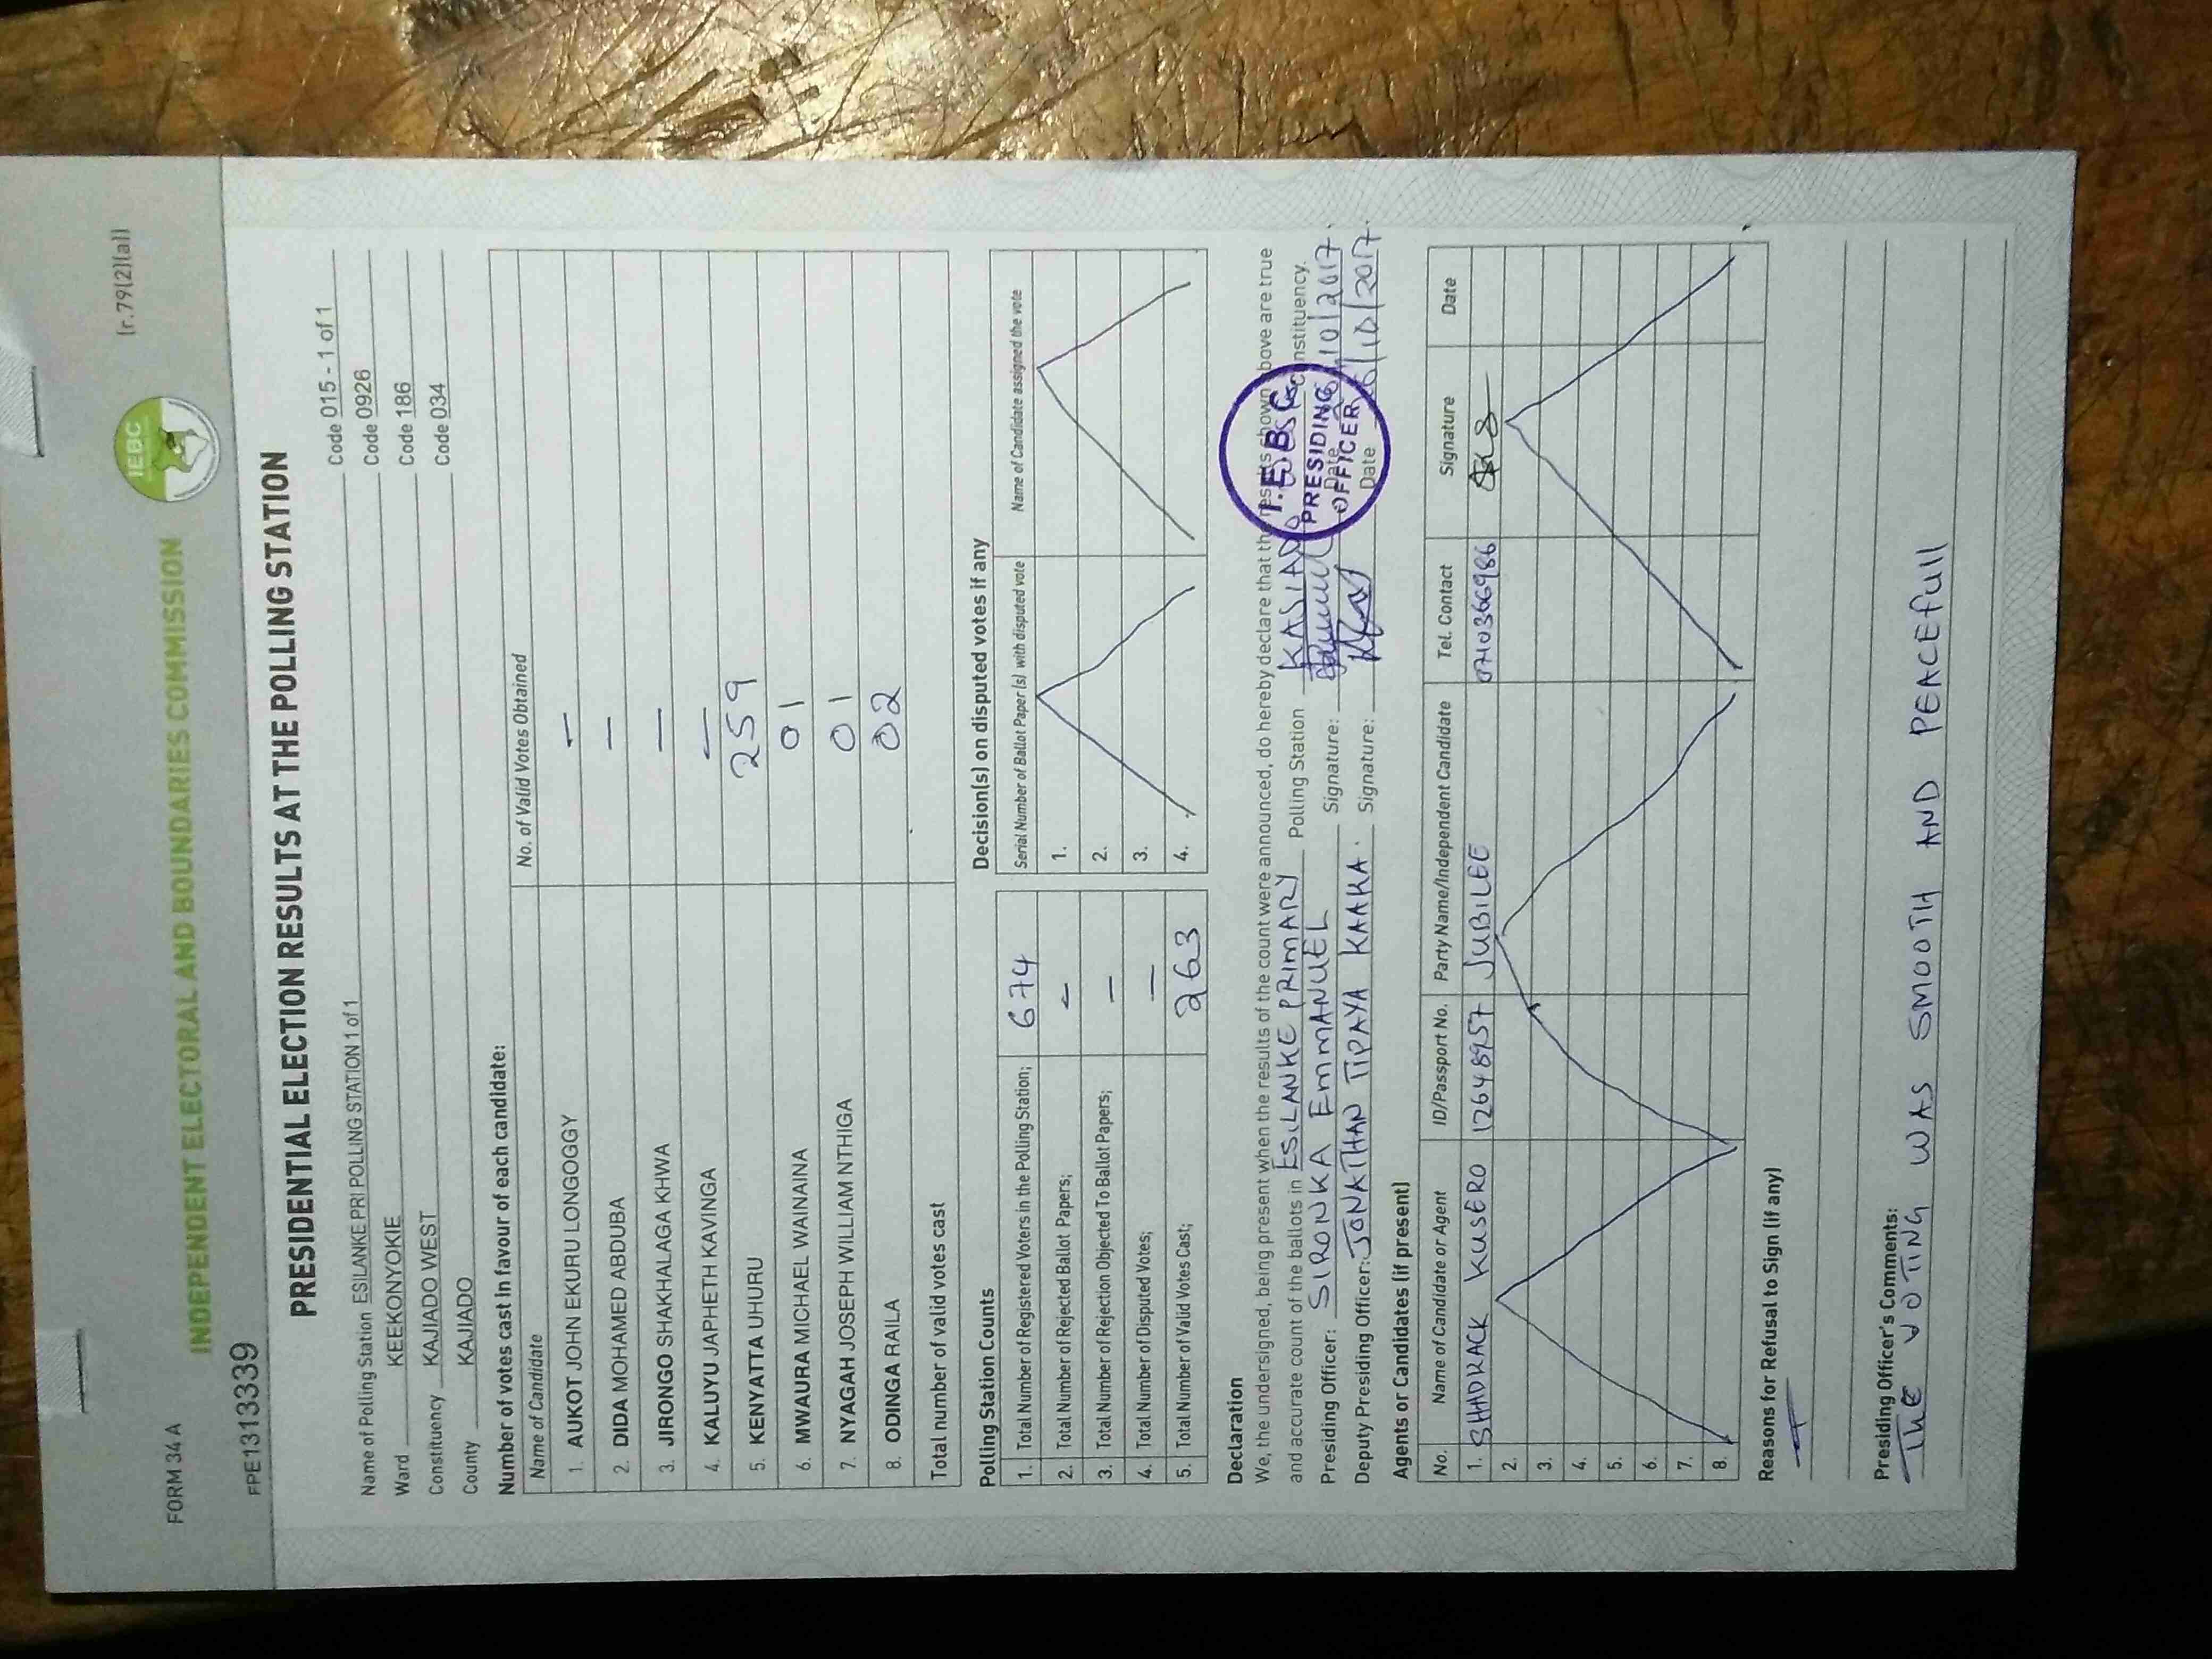 FORM 34 A
(r.79(2)(a))
IEBC
INDEPENDENT ELECTORAL AND BOUNDARIES COMMISSION
FPE1313339
PRESIDENTIAL ELECTION RESULTS AT THE POLLING STATION
Name of Polling Station ESILANKE PRI POLLING STATION 1 of 1 Code 015 - 1 of 1
Ward KEEKONYOKIE Code 0926
Constituency KAJIADO WEST Code 186
County KAJIADO Code 034
Number of votes cast in favour of each candidate:
Name of Candidate No. of Valid Votes Obtained
1. AUKOT JOHN EKURU LONGOGGY —
2. DIDA MOHAMED ABDUBA —
3. JIRONGO SHAKHALAGA KHWA —
4. KALUYU JAPHETH KAVINGA —
5. KENYATTA UHURU 259
6. MWAURA MICHAEL WAINAINA 01
7. NYAGAH JOSEPH WILLIAM NTHIGA 01
8. ODINGA RAILA 02
Total number of valid votes cast
Polling Station Counts
1. Total Number of Registered Voters in the Polling Station; 674
2. Total Number of Rejected Ballot Papers; —
3. Total Number of Rejection Objected To Ballot Papers; —
4. Total Number of Disputed Votes; —
5. Total Number of Valid Votes Cast; 263
Decision(s) on disputed votes if any
Serial Number of Ballot Paper (s) with disputed vote Name of Candidate assigned the vote
1.
2.
3.
4.
Declaration
We, the undersigned, being present when the results of the count were announced, do hereby declare that the results shown above are true
and accurate count of the ballots in ESILANKE PRIMARY Polling Station KAJIADO Constituency.
Presiding Officer: SIRONKA EMMANUEL Signature: Date /10/2017.
Deputy Presiding Officer: JONATHAN TIPAYA KAAKA. Signature: Date /10/2017.
I.E.B.C
PRESIDING
OFFICER
Agents or Candidates (if present)
No. Name of Candidate or Agent ID/Passport No. Party Name/Independent Candidate Tel. Contact Signature Date
1. SHADRACK KUSERO 12648957 JUBILEE 0710366986
2.
3.
4.
5.
6.
7.
8.
Reasons for Refusal to Sign (if any)
Presiding Officer's Comments:
THE VOTING WAS SMOOTH AND PEACEfull